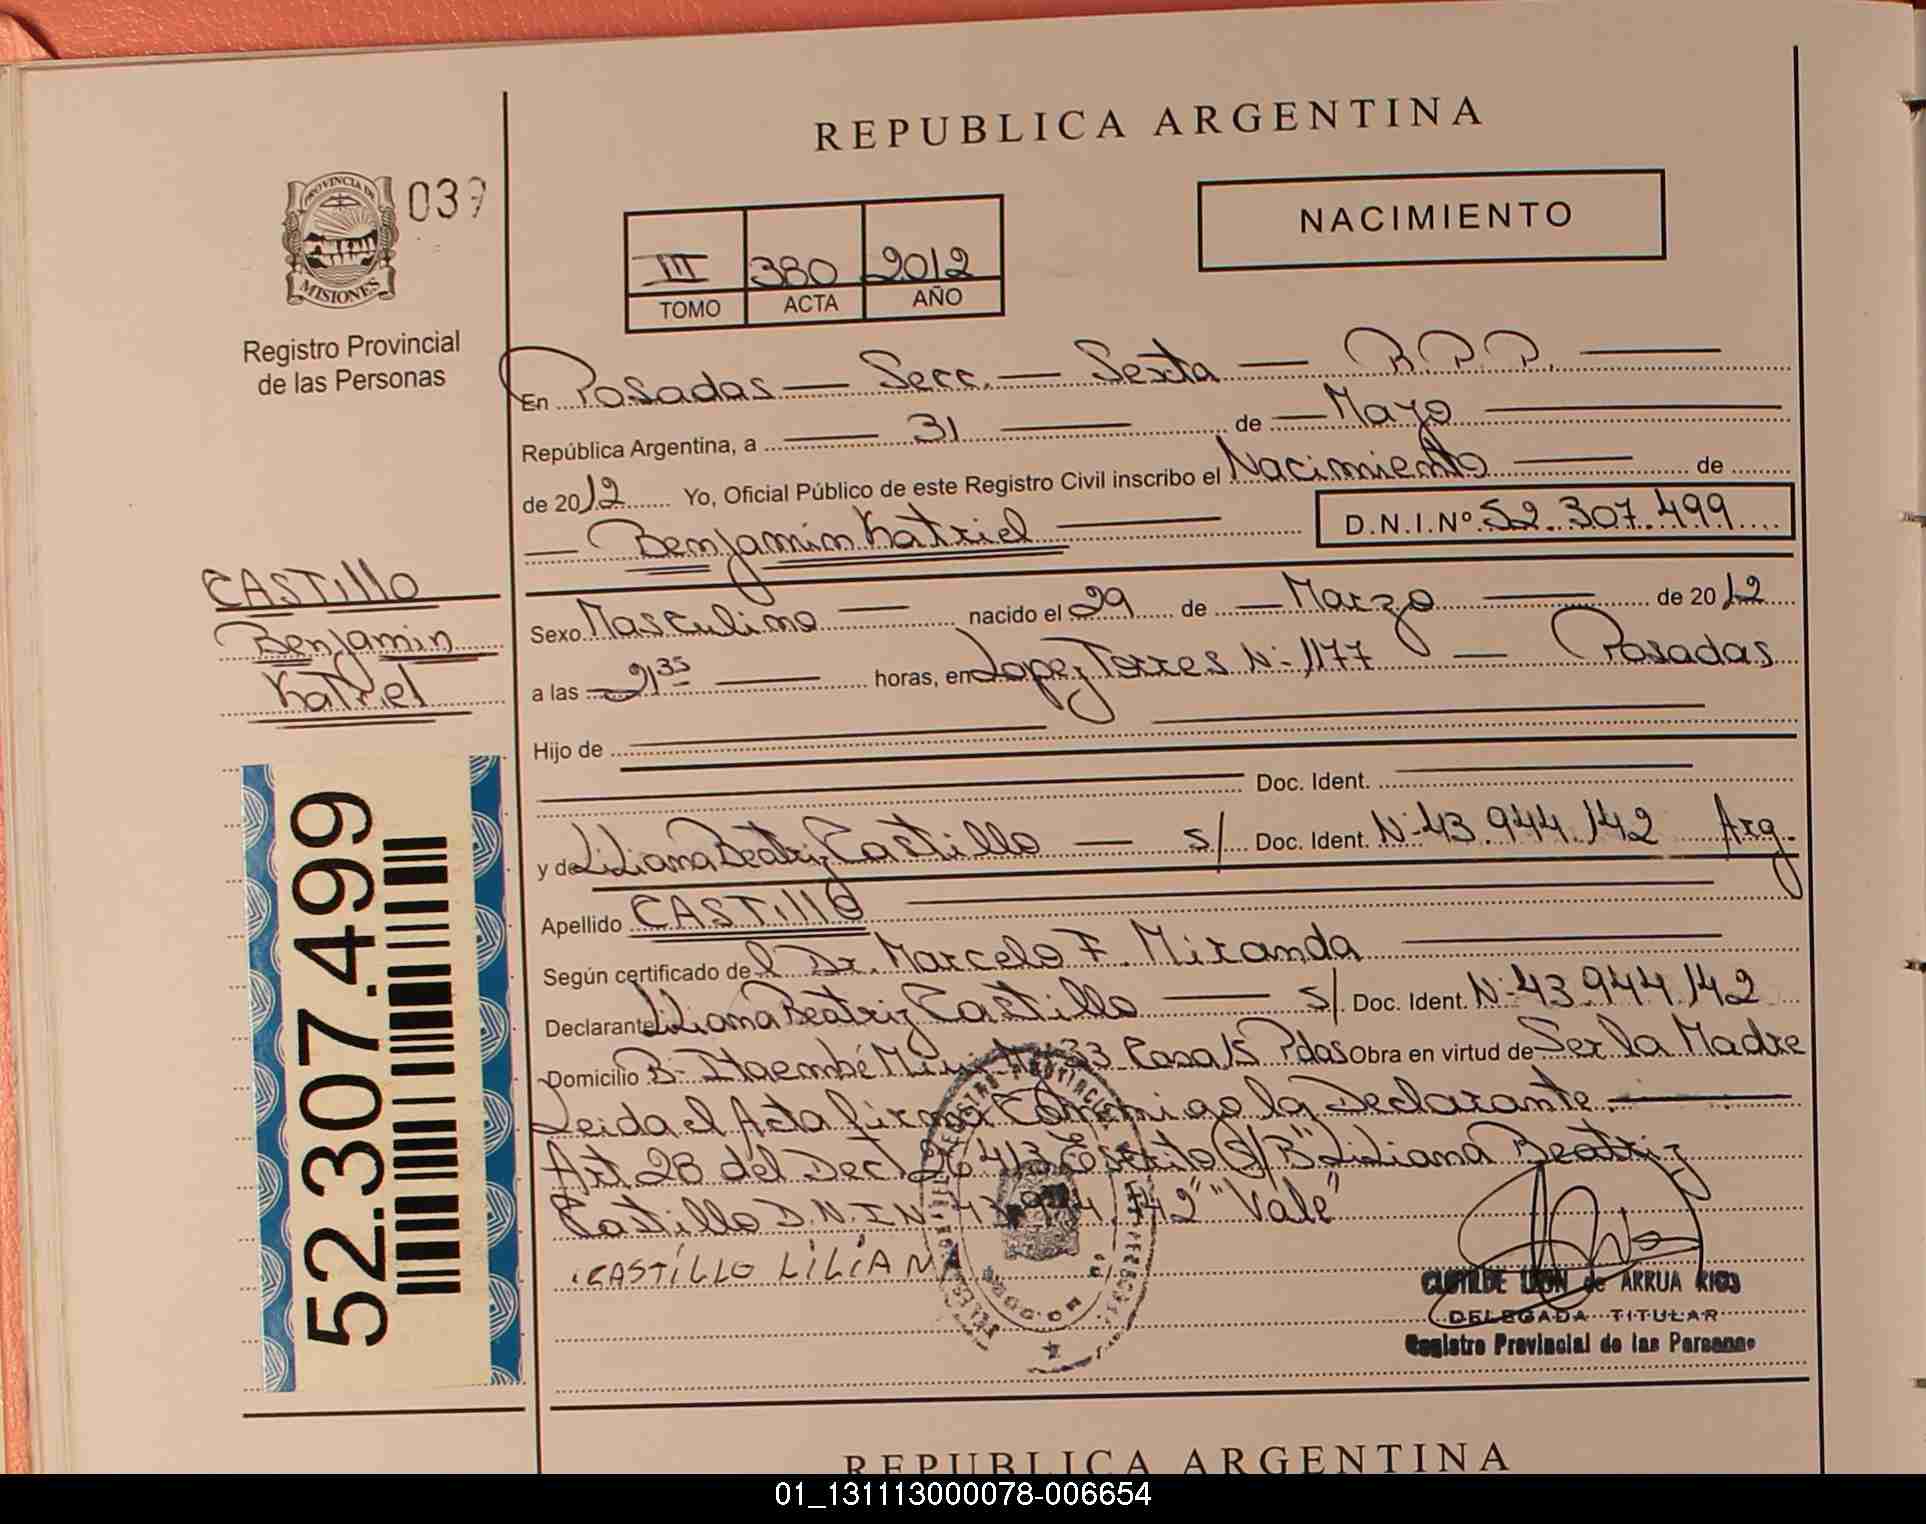 REPUBLICA ARGENTINA
PROVINCIA DE
MISIONES
039
Registro Provincial
de las Personas
NACIMIENTO
III 380 2012
TOMO ACTA AÑO
En Posadas — Secc. — Sexta — R.P.P. —
República Argentina, a — 31 — de — Mayo —
de 2012 Yo, Oficial Público de este Registro Civil inscribo el Nacimiento — de
— Benjamin Katriel — D.N.I.Nº 52.307.499
CASTillo
Benjamin
Katriel
Sexo Masculino — nacido el 29 de — Marzo — de 2012
a las — 21 35 — horas, en Lopez Torres Nº 1177 — Posadas
Hijo de
Doc. Ident.
y de Liliana Beatriz Castillo — s/ Doc. Ident. Nº 43.944.142 Arg.
Apellido CASTillo
Según certificado del Dr. Marcelo F. Miranda
Declarante Liliana Beatriz Castillo — s/ Doc. Ident. Nº 43.944.142
Domicilio Bº Itaembé Miní 33 Casa 15 Pdas Obra en virtud de Ser la Madre
Leida el Acta firma Conmigo la Declarante. —
Art 28 del Dec 26413 Escrito S/B "Liliana Beatriz
Castillo D.N.I.Nº 43.944.142" "Vale"
CASTILLO LILIAN
CLOTILDE LEON de ARRUA RIOS
DELEGADA TITULAR
Registro Provincial de las Personas
52.307.499
REPUBLICA ARGENTINA
01_131113000078-006654